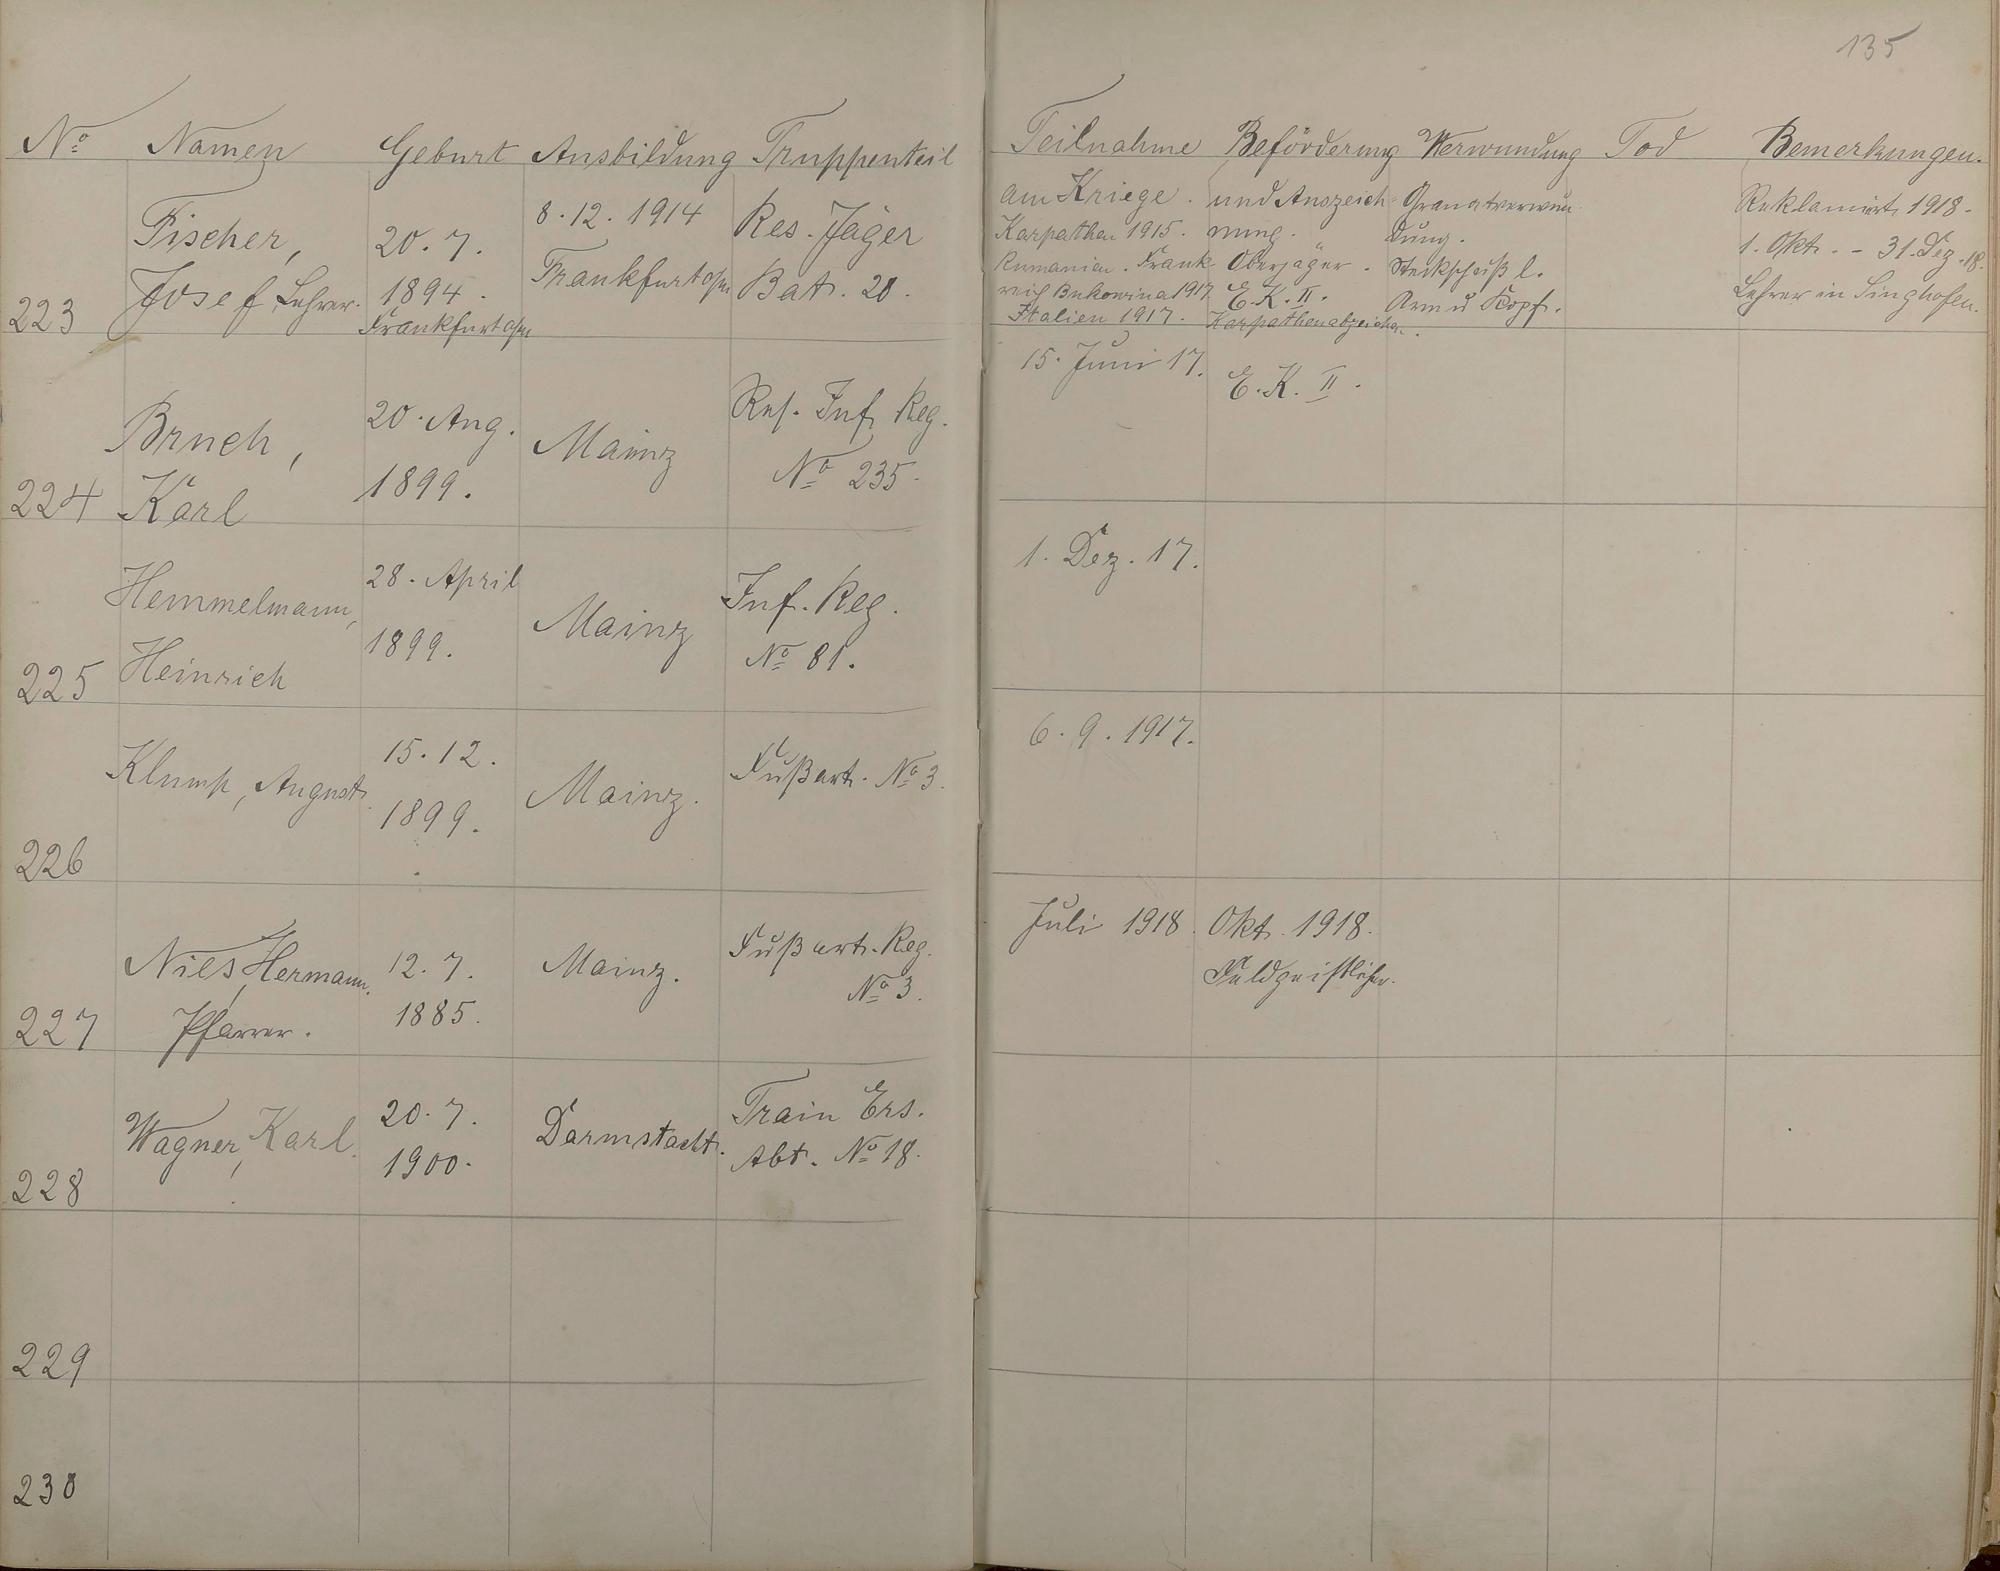 135
No Namen Geburt Ausbildung Truppenteil Teilnahme Beförderung Verwundung Tod Bemerkungen.
am Kriege. und Auszeich-
nung.
223 Fischer,
Josef, Lehrer.
20. 7.
1894.
Frankfurt a/m
8. 12. 1914
Frankfurt a/m
Res. Jäger
Bat. 20.
Karpathen 1915.
Rumänien. Frank-
reich Bukowina 1917
Italien 1917.
Oberjäger.
E. K. II.
Karpathenabzeichen.
Granatverwun-
dung.
Steckschuß l.
Arm u Kopf.
Reklamirt 1918.
1. Okt. - 31. Dez. 18.
Lehrer in Singhofen.
224 Bruch,
Karl
20. Aug.
1899.
Mainz
Res. Inf. Reg.
No 235.
15. Juni 17.
E. K. II.
225 Hemmelmann,
Heinrich
28. April
1899.
Mainz
Inf. Reg.
No 81.
1. Dez. 17.
226 Klump, August.
15. 12.
1899.
Mainz.
Fußart. No 3.
6. 9. 1917.
227 Nies, Hermann.
Pfarrer.
12. 7.
1885.
Mainz.
Fußart. Reg.
No 3.
Juli 1918.
Okt. 1918.
Feldgeistlicher.
228 Wagner, Karl.
20. 7.
1900.
Darmstadt.
Train Ers.
Abt. No 18.
229
230